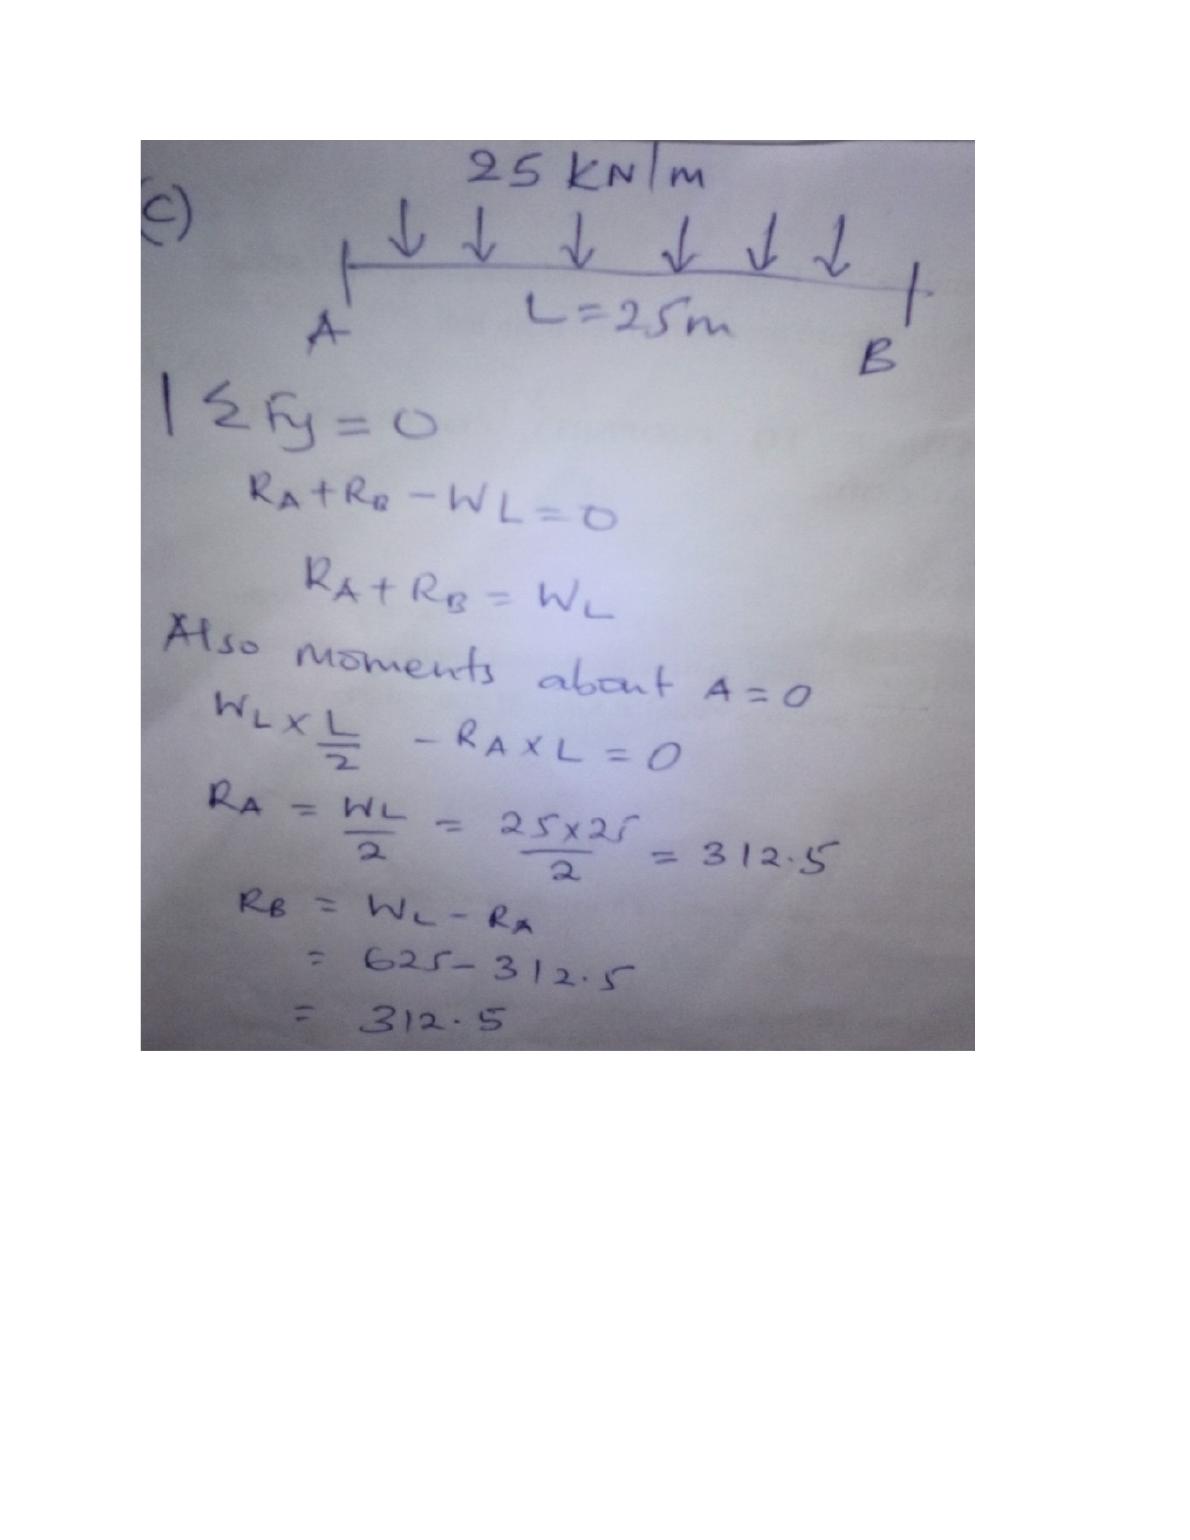 25 KN/m
C)
A
L=25m
B
Σ Fy = 0
RA + RB - WL = 0
RA + RB = WL
Also moments about A = 0
WL x L/2 - RA x L = 0
RA = WL/2 = 25x25/2 = 312.5
RB = WL - RA
= 625 - 312.5
= 312.5